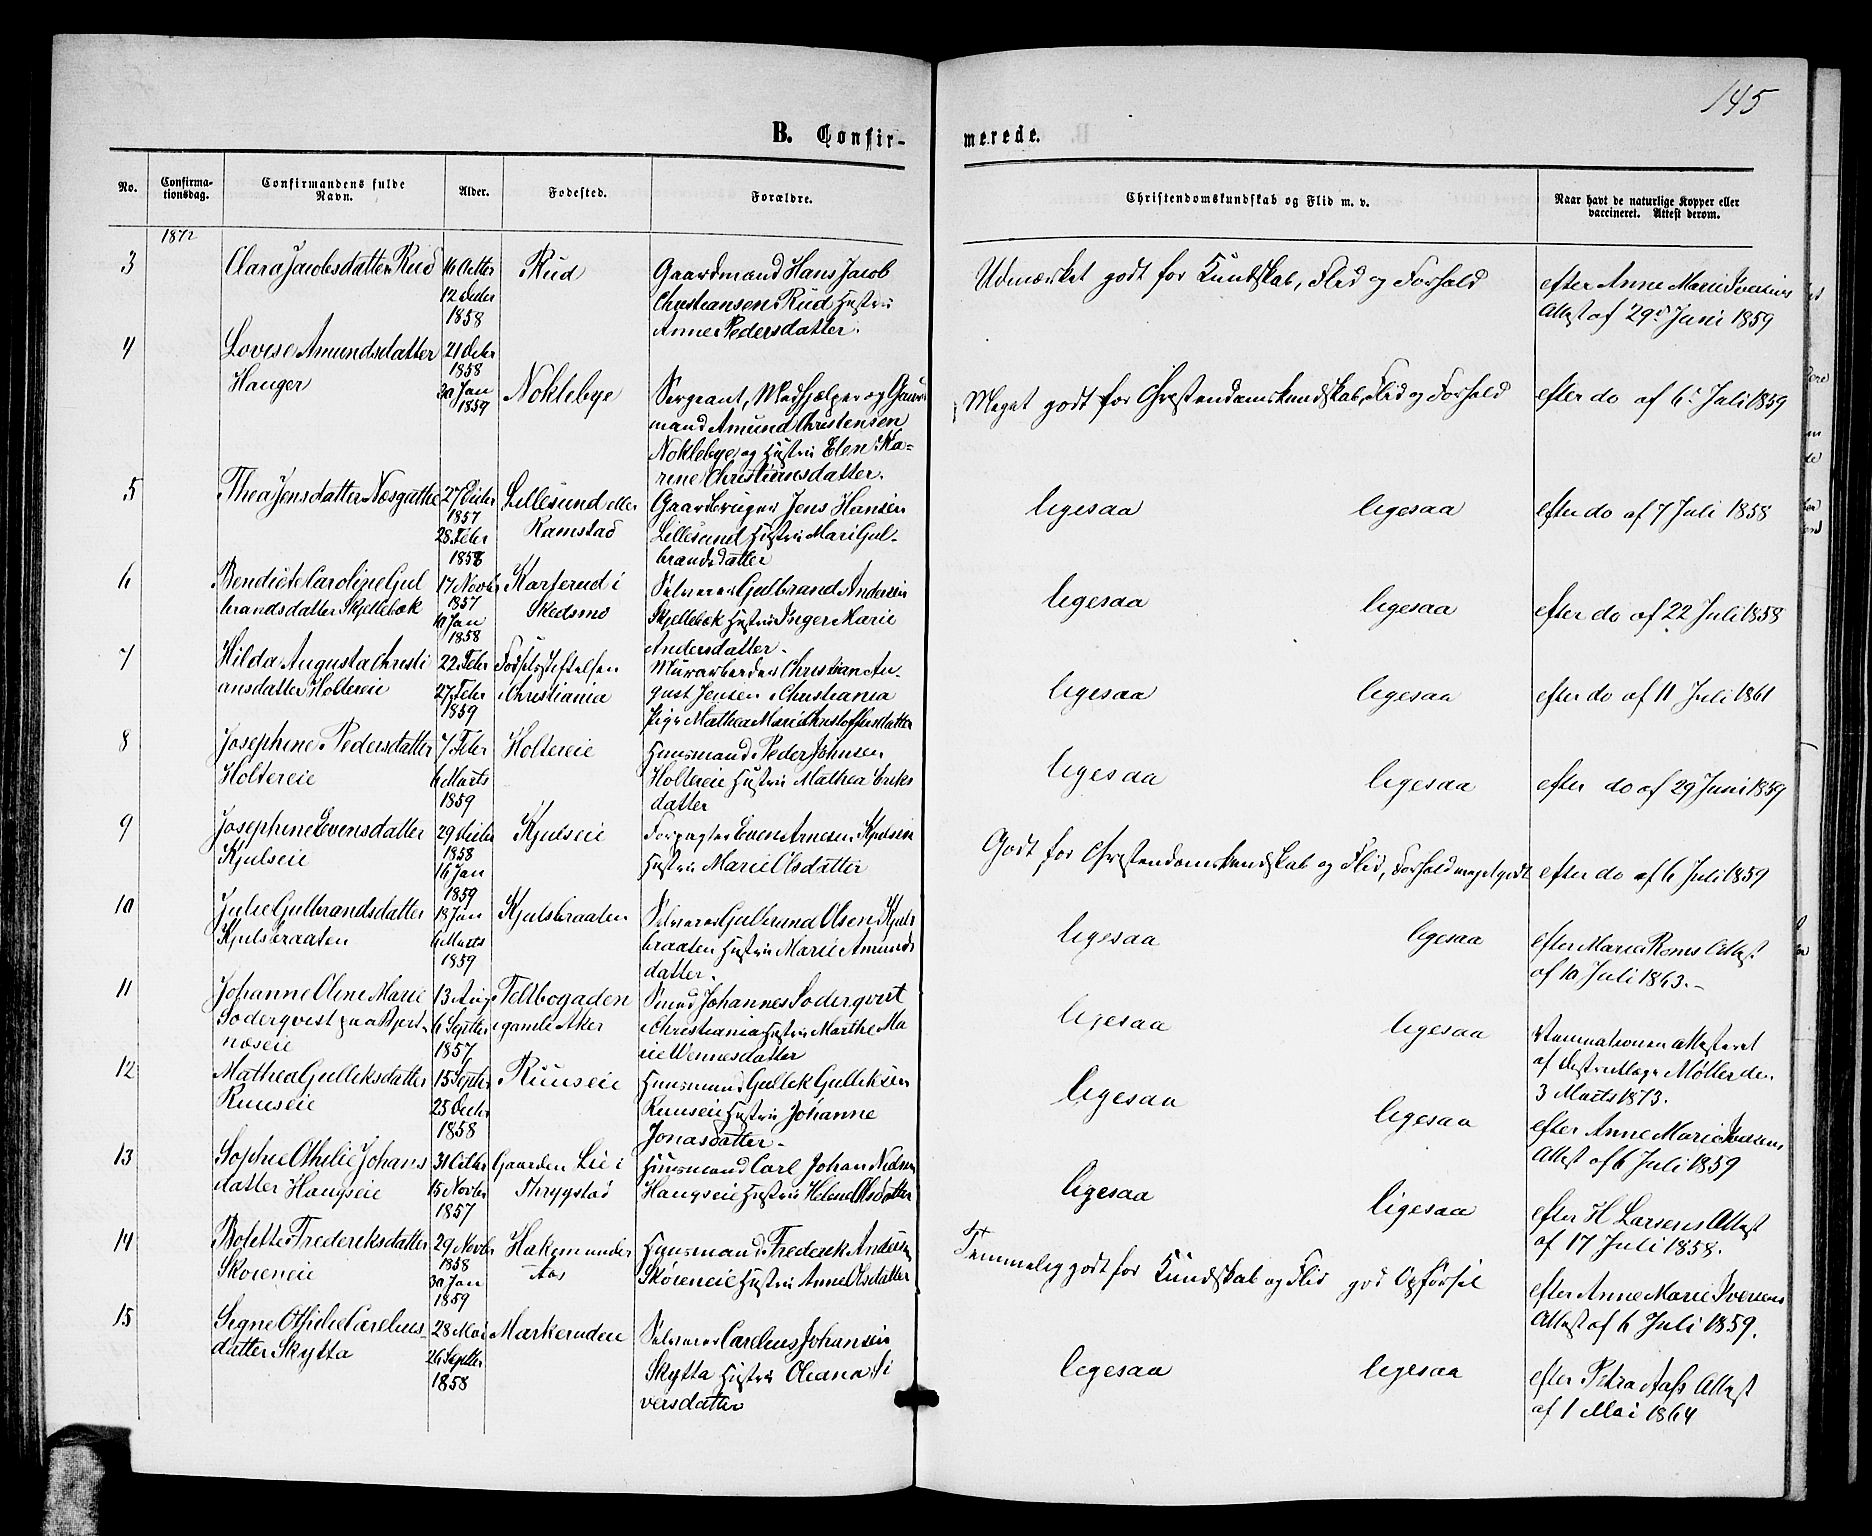 145
B. Confir-
merede.
No.
Confirma-
tionsdag.
Confirmandens fulde
Navn.
Alder.
Fødested.
Forældre.
Christendomskundskab og Flid m. v.
Naar havt de naturlige Kopper eller
vaccineret. Attest derom.
1872
3
Clara Jacobsdatter Rud
16 Octbr
12 Decbr
1858
Rud
Gaardmand Hans Jacob
Christiansen Rud Hustru
Anne Pedersdatter.
Udmærket godt for Kundskab, Flid og Forhold
efter Anne Marie Iversens
Attest af 29d Juni 1859
4
Lovise Amundsdatter
Hauger
21 Decbr
1858
30 Jan
1859
Noklebye
Sergeant, Medhjælper og Gaard-
mand Amund Christensen
Noklebye og Hustru Elen Ka-
rine Christiansdatter.
Meget godt for Christendomskundskab, Flid og Forhold
efter do af 6t Juli 1859
5
Thea Jensdatter Næsgutua
27 Decbr
1857
28 Febr
1858
Lillesund eller
Ramstad
Gaardbruger Jens Hansen
Lillesund Hustru Mari Gul-
brandsdatter
ligesaa
ligesaa
efter do af 7 Juli 1858
6
Bendicte Caroline Gul
brandsdatter Skjellebæk
17 Novbr
1857
10 Jan
1858
Karserud i
Skedsmo
Selveier Gulbrand Andersen
Skjellebæk Hustru Inger Marie
Andersdatter.
ligesaa
ligesaa
efter do af 22 Juli 1858
7
Hilda Augusta Christi
ansdatter Holtereie
22 Febr
27 Febr
1859
Fødselsstiftelsen
i Christiania
Murarbeider Christian Au-
gust Jensen i Christiania
Pige Mathea Marie Christoffersdatter
ligesaa
ligesaa
efter do af 11 Juli 1861
8
Josephine Pedersdatter
Holtereie
7 Febr
6 Marts
1859
Holtereie
Huusmand Peder Johnsen
Holtereie Hustru Mathea Eriks
datter
ligesaa
ligesaa
efter do af 29 Juni 1859
9
Josephine Evensdatter
Kjulseie
29 Decbr
1858
16 Jan
1859
Kjulseie
Forpagter Even Arnesen Kjulseie
Hustru Marie Olsdatter
Godt for Christendomskundskab og Flid, Forhold meget godt
efter do af 6 Juli 1859
10
Julie Gulbrandsdatter
Kjulsbraaten
18 Jan
6 Marts
1859
Kjulsbraaten
Selveier Gulbrand Olsen Kjuls
braaten Hustru Marie Amunds
datter.
ligesaa
ligesaa
efter Maria Roms Attest
af 10 Juli 1863.-
11
Johanne Oline Marie
Soderqvist paa Bjert-
næseie
13 Aug
6 Septbr
1857
Feltbogaden
i gamle Aker
Smed Johannes Soderqvist
i Christiania Hustru Marthe Ma
rie Wennesdatter
ligesaa
ligesaa
Vaccinationen attesteret
af Districtslæge Møller de.
3 Marts 1873.
12
Mathea Gulliksdatter
Ruuseie
15 Septbr
25 Decbr
1858
Ruuseie
Huusmand Gullek Gulliksen
Ruuseie Hustru Johanne
Jonasdatter.
ligesaa
ligesaa
efter Anne Marie Iversens
Attest af 6 Juli 1859
13
Sophie Othilie Johans
datter Haugseie
31 Octbr
15 Novbr
1857
Gaarden Lie i
Thrygstad
Huusmand Carl Johan Nielsen
Haugseie Hustru Helene Olsdatter
ligesaa
ligesaa
efter H Larsens Attest
af 17 Juli 1858.
14
Bolette Frederiksdatter
Skøreneie
29 Novbr
1858
30 Jan
1859
Hakemunder
Aas
Huusmand Frederik Andersen
Skøreneie Hustru Anne Olsdatter
Temmelig godt for Kundskab og Flid god Opførsel
efter Anne Marie Iversens
Attest af 6 Juli 1859.
15
Signe Othilie Carelius-
datter Skytta
28 Mai
26 Septbr
1858
Markeruden
Selveier Carelius Johansen
Skytta Hustru Oleana Si
versdatter
ligesaa
ligesaa
efter Petra Aass Attest
af 1 Mai 1864